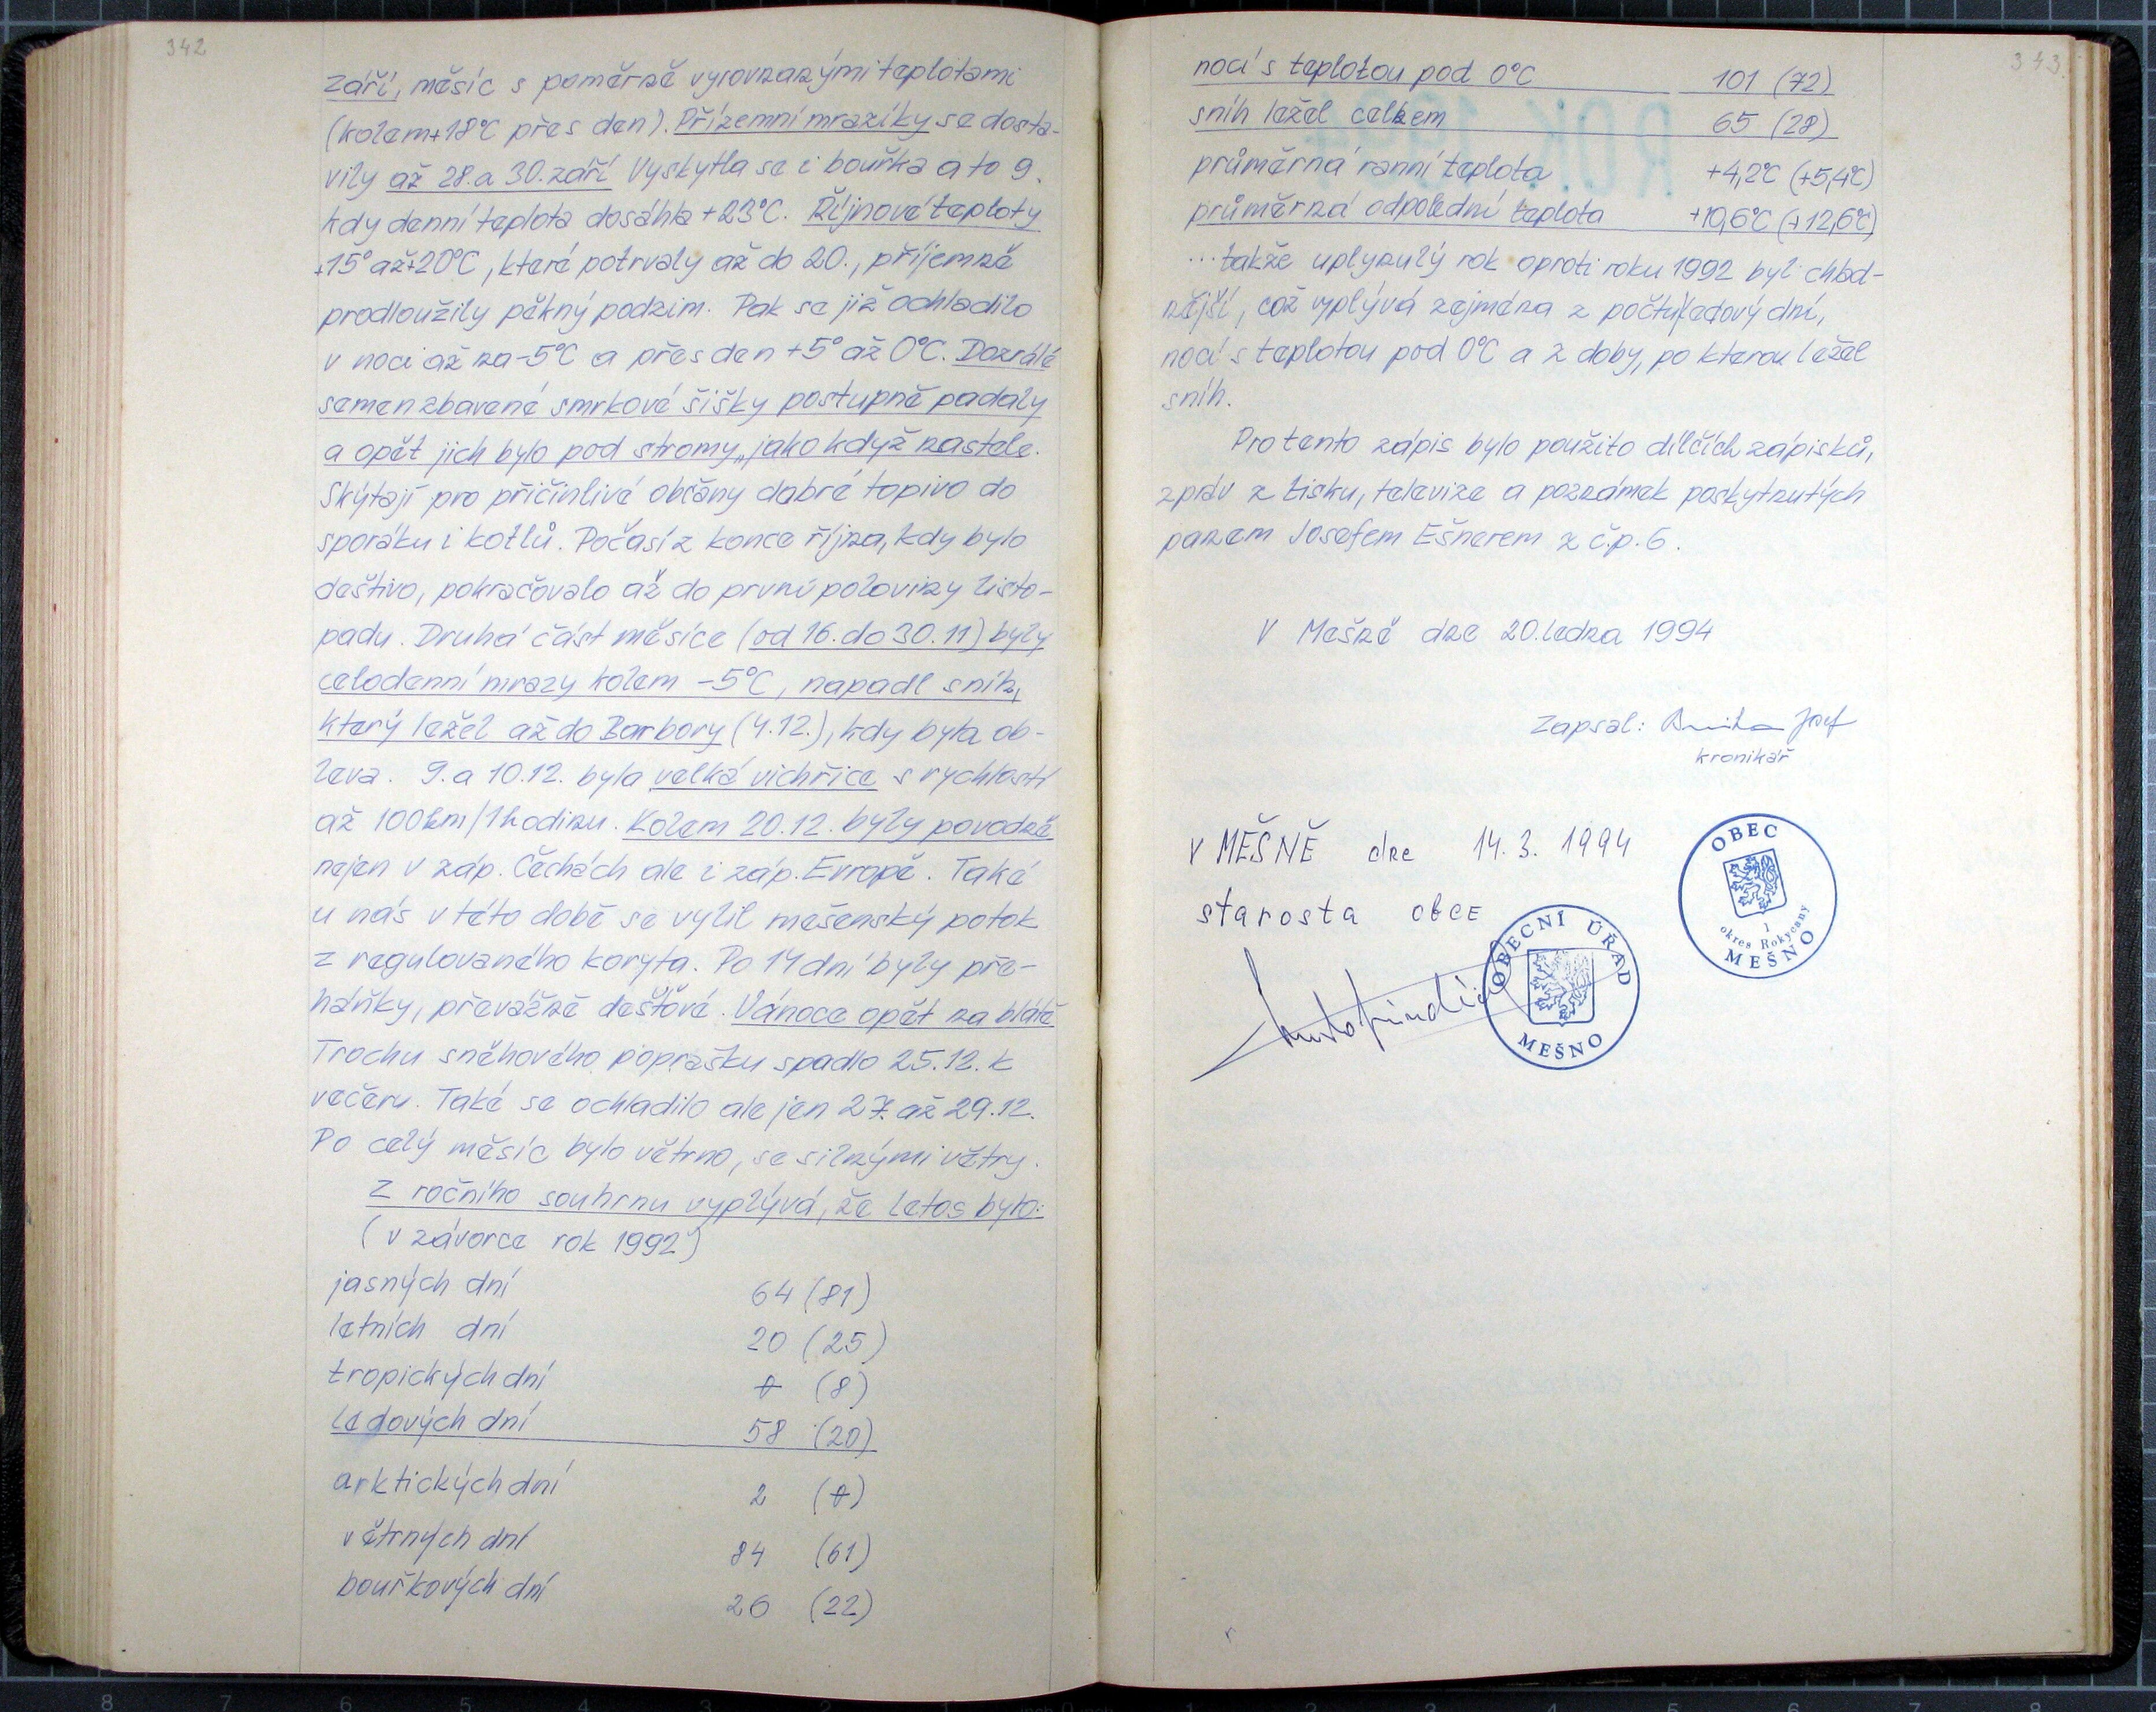 342
září, měsíc s poměrně vyrovnanými teplotami
(kolem +18°C přes den). Přízemní mrazíky se dosta-
vily až 28. a 30. září Vyskytla se i bouřka a to 9.
kdy denní teplota dosáhla +23°C. Říjnové teploty
+15° až +20°C, které potrvaly až do 20., příjemně
prodloužily pěkný podzim. Pak se již ochladilo
v noci až na -5°C a přes den +5° až 0°C. Dozrálé
semen zbavené smrkové šišky postupně padaly
a opět jich bylo pod stromy „jako když nastele.
Skýtají pro přičinlivé občany dobré topivo do
sporáku i kotlů. Počasí z konce října, kdy bylo
deštivo, pokračovalo až do první poloviny listo-
padu. Druhá část měsíce (od 16. do 30.11) byly
celodenní mrazy kolem -5°C, napadl sníh,
který ležel až do Barbory (4.12.), kdy byla ob-
leva. 9. a 10.12. byla velká vichřice s rychlostí
až 100km/1hodinu. Kolem 20.12. byly povodně
nejen v záp. Čechách ale i záp. Evropě. Také
u nás v této době se vylil mešenský potok
z regulovaného koryta. Po 14 dní byly pře-
háňky, převážně dešťové. Vánoce opět na blátě
Trochu sněhového poprašku spadlo 25.12. k
večeru. Také se ochladilo ale jen 27. až 29.12.
Po celý měsíc bylo větrno, se silnými větry.
Z ročního souhrnu vyplývá, že letos bylo:
(v závorce rok 1992)
jasných dní 64 (81)
letních dní 20 (25)
tropických dní 0 (8)
ledových dní 58 (20)
arktických dní 2 (0)
větrných dní 84 (61)
bouřkových dní 26 (22)
343.
nocí s teplotou pod 0°C 101 (72)
sníh ležel celkem 65 (28)
průměrná ranní teplota +4,2°C (+5,4°C)
průměrná odpolední teplota +10,6°C (+12,6°C)
...takže uplynulý rok oproti roku 1992 byl chlad-
nější, což vyplývá zejména z počtu ledový dní,
nocí s teplotou pod 0°C a z doby, po kterou ležel
sníh.
Pro tento zápis bylo použito dílčích zápisků,
zpráv z tisku, televize a poznámek poskytnutých
panem Josefem Ešnerem z č.p. 6.
V Mešně dne 20. ledna 1994
Zapsal: Josef
kronikář
V MĚŠNĚ dne 14. 3. 1994
starosta obce
OBEC
1
okres Rokycany
MEŠNO
OBECNÍ ÚŘAD
MEŠNO